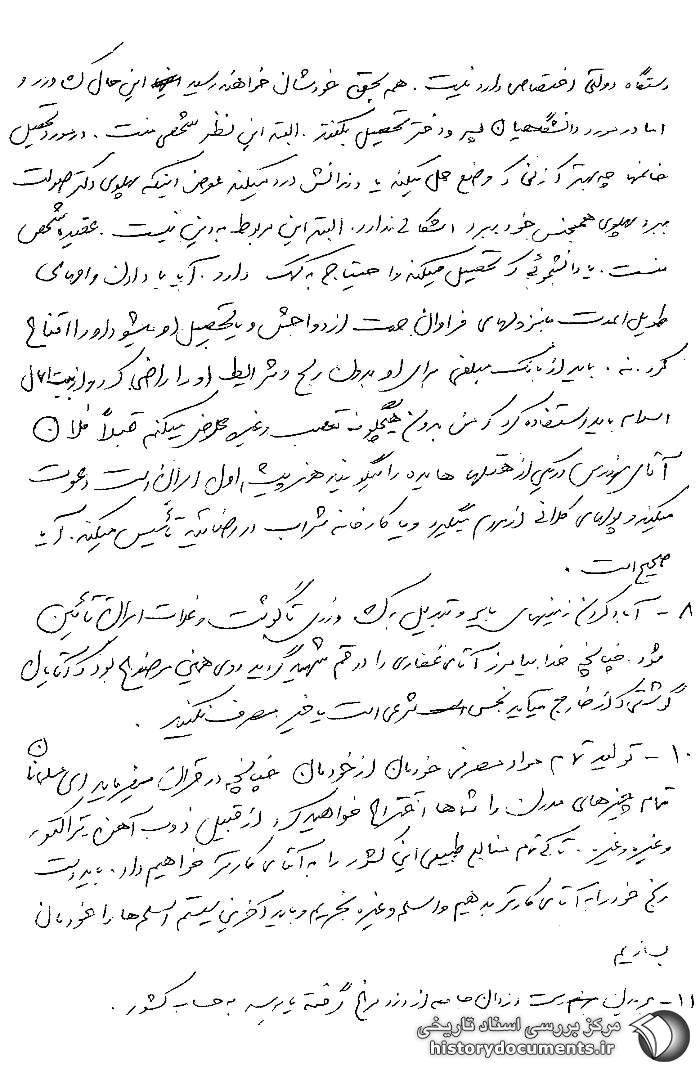 دستگاه دولتی اختصاص دارد نیست. هم بحق خودشان خواهند رسید این حال که دزد و
اما در مورد دانشگاهیان پسر و دختر تحصیل بکنند. البته این نظر شخصی منست. در مورد تحصیل
خانمها چه بهتر که زنی که وضع حمل میکند یا دندانش درد میکند عوض اینکه پهلوی دکتر صولت
برود پهلوی همجنس خود برود اشکالی ندارد. البته این مربوط به دین نیست. عقیده شخصی
منست. یا دانشجوئی که تحصیل میکند و احتیاج به کمک دارد. آیا با دادن وامهای
طویل المدت با نزولهای فراوان جهت ازدواجش و یا تحصیل او میشود او را اقناع
کرد. نه. باید از بانک مبلغی برای او بدون ربح و شرایط او را راضی کرد و از بیت المال
اسلام باید استفاده کرد که من بدون هیچگونه تعصب و غیره عرض میکنم قبلاً فلان
آقای در یکی از هتلها هایده را میگویند هنرپیشه اول ایران است دعوت
میکند و پولهای کلانی از مردم میگیرد و یا کارخانه شراب در رضائیه تأسیس میکند. آیا
صحیح است.
۸ - آباد کردن زمینهای بایر و تبدیل به کشاورزی تا گوشت و غلات ایران تأمین
شود. چنانچه خدا بیامرز آقای غفاری را در قم شهید گردید روی همین موضوع بود که آقایان
گوشتی که از خارج میآید نجس است شرعی است یا خیر مصرف نکنید.
۱۰ - تولید تمام مواد مصرفی خودمان از خودمان چنانچه در قرآن میفرماید ای مسلمانان
تمام چیزهای مدرن را شماها اختراع خواهید کرد از قبیل ذوب آهن، تراکتور
و غیره و غیره. تا کی تمام منابع طبیعی این کشور را به آقای کارتر خواهیم داد. باید دست
رنج خود را به آقای کارتر بدهیم و اسلحه و غیره بخریم و باید آخرین سیستم اسلحه‌ها را خودمان
بسازیم
۱۱ - سرپرست دزدان جامعه از دزد مرغ گرفته تا برسد به حساب کشور.
مرکز بررسی اسناد تاریخی
historydocuments.ir